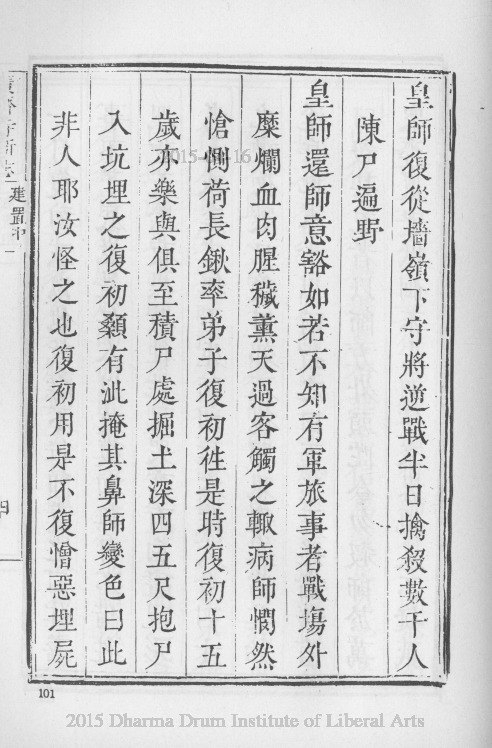 皇師復從墻嶺下守將逆戰半日擒殺數千人
陳尸遍野
皇師還師意豁如若不知有軍旅事者戰塲外
糜爛血肉腥穢薰天過客觸之輙病師憫然
愴惻荷長鍬率弟子復初徃是時復初十五
歲亦樂與俱至積尸處掘土深四五尺抱尸
入坑埋之復初顙有泚掩其鼻師變色曰此
非人耶汝怪之也復初用是不復憎惡埋屍
建置中
四
101
2015 Dharma Drum Institute of Liberal Arts